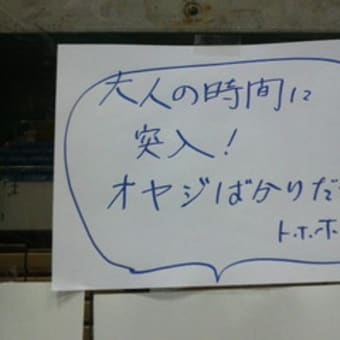 大人の時間に
突入!
オヤジばかりだ
ト.ホ.ホ